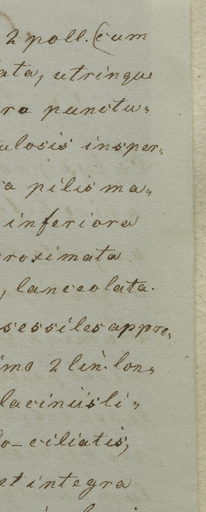 2 poll. (cum
ata, utringue
ra punctu-
ulosis insper-
a pilis ma-
inferiora
roximata
, lanceolata.
sessiles appro-
imo 2 lin. lon-
laciniis li-
do-ciliatis,
et integra